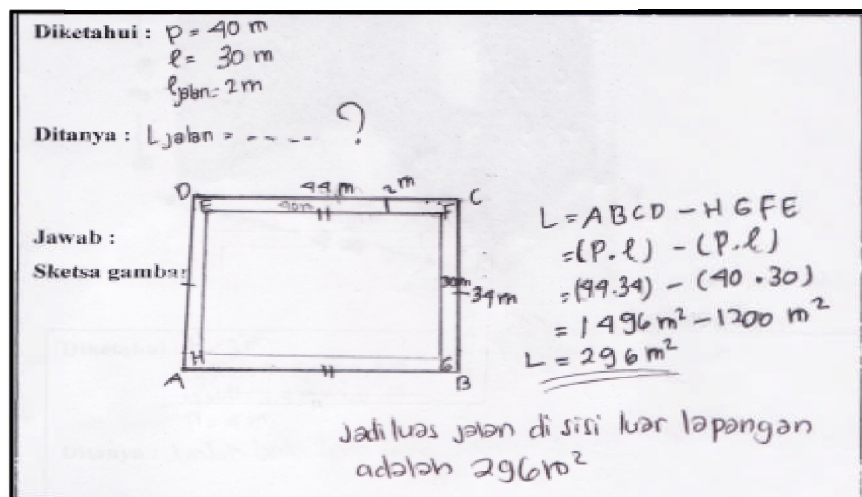 Diketahui : p = 40 m
l = 30 m
l jalan = 2 m
Ditanya : L jalan = - - - - ?
Jawab :
Sketsa gambar
D 44 m 2m C
E 40m F
30m
34m
H G
A B
L = ABCD - HGFE
= (P.l) - (P.l)
= (44.34) - (40.30)
= 1496 m² - 1200 m²
L = 296 m²
Jadi luas jalan di sisi luar lapangan
adalah 296 m²